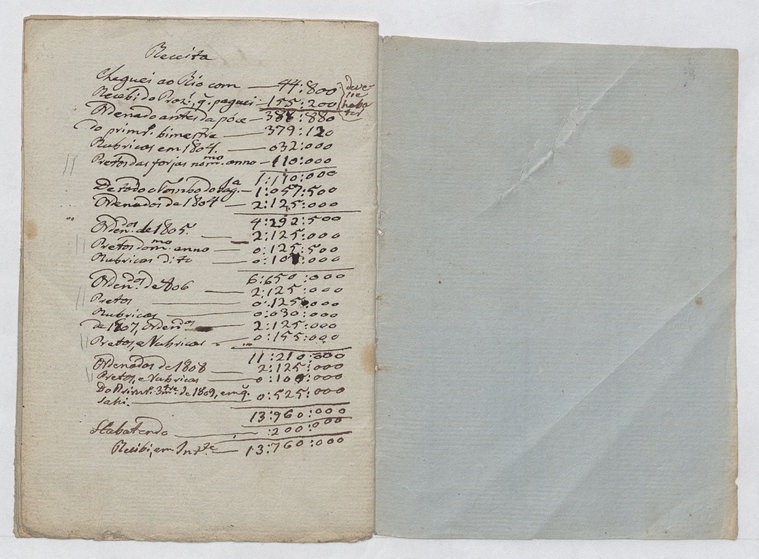 Receita
Cheguei ao Rio com — 44:800
Recebi do Proz. q. paguei — 155:200
deve se haba ter
Ordenado antes da posse — 388:880
Do primr. bimestre — 379:120
Rubricas em 1804. — 032:000
Pretos das forjas no mmo. anno — 110:000
1:110:000
De todo o Tombo do — 1:057:500
Ordenados de 1804 — 2:125:000
4:292:500
Ordendos. de 1805. — 2:125:000
Pretos do mmo. anno — 0:125:500
Rubricas dito — 0:107:000
6:650:000
Ordendos. de 806 — 2:125:000
Pretos — 0:125:000
Rubricas — 0:030:000
de 1807, Ordendos. — 2:125:000
Pretos, e Rubricas — 0:155:000
11:210:000
Ordenados de 1808 — 2:125:000
Pretos, e Rubricas — 0:100:000
Do Primr. 3mtre. de 1809, em q. 0:525:000
sahi.
13:960:000
Abatendo — 200:000
Recibi, em — 13:760:000